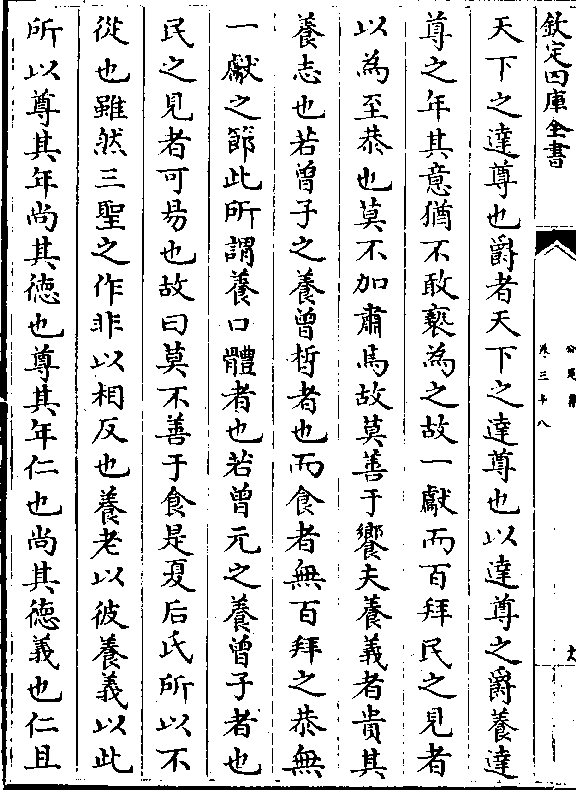 欽定四庫全書
卷三十八
天下之達尊也爵者天下之達尊也以達尊之爵養達
尊之年其意猶不敢褻為之故一獻而百拜民之見者
以為至恭也莫不加肅焉故莫善于饗夫養義者貴其
養志也若曾子之養曾晳者也而食者無百拜之恭無
一獻之節此所謂養口體者也若曾元之養曾子者也
民之見者可易也故曰莫不善于食是夏后氏所以不
從也雖然三聖之作非以相反也養老以彼養義以此
所以尊其年尚其德也尊其年仁也尚其德義也仁且